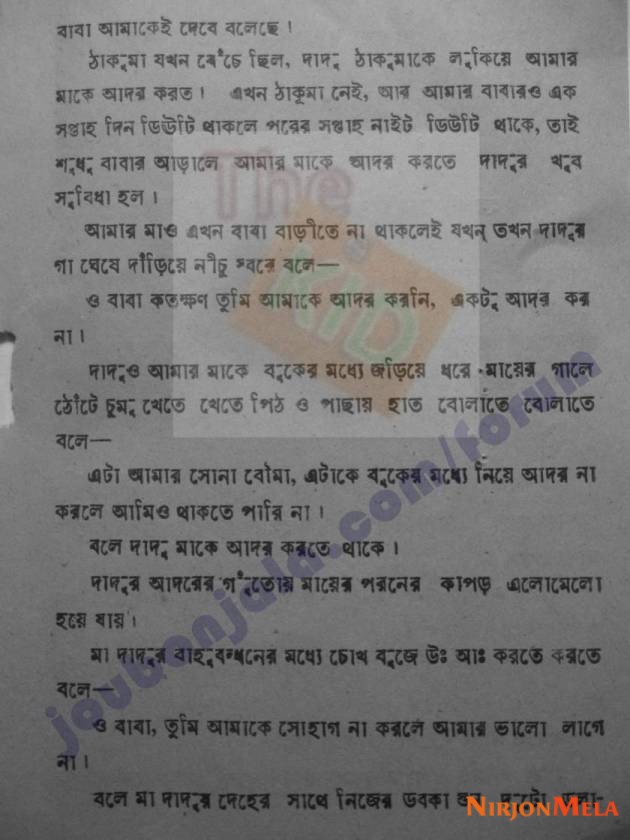 বাবা আমাকেই দেবে বলেছে ।
ঠাকুমা যখন বেঁচে ছিল, দাদু ঠাকুমাকে লুকিয়ে আমার
মাকে আদর করত । এখন ঠাকুমা নেই, আর আমার বাবারও এক
সপ্তাহ দিন ডিউটি থাকলে পরের সপ্তাহ নাইট ডিউটি থাকে, তাই
শুধু বাবার আড়ালে আমার মাকে আদর করতে দাদুর খুব
সুবিধা হল ।
আমার মাও এখন বাবা বাড়ীতে না থাকলেই যখন্ তখন দাদুর
গা ঘেষে দাঁড়িয়ে নীচু স্বরে বলে—
ও বাবা কতক্ষণ তুমি আমাকে আদর করনি, একটু আদর কর
না ।
দাদুও আমার মাকে বুকের মধ্যে জড়িয়ে ধরে মায়ের গালে
ঠোঁটে চুমু খেতে খেতে পিঠ ও পাছায় হাত বোলাতে বোলাতে
বলে—
এটা আমার সোনা বৌমা, এটাকে বুকের মধ্যে নিয়ে আদর না
করলে আমিও থাকতে পারি না ।
বলে দাদু মাকে আদর করতে থাকে ।
দাদুর আদরের গুঁতোয় মায়ের পরনের কাপড় এলোমেলো
হয়ে যায় ।
মা দাদুর বাহুবন্ধনের মধ্যে চোখ বুজে উঃ আঃ করতে করতে
বলে—
ও বাবা, তুমি আমাকে সোহাগ না করলে আমার ভালো লাগে
না ।
বলে মা দাদুর দেহের সাথে নিজের ডবকা
The KID
joubonjala.com/forum
NIRJONMELA